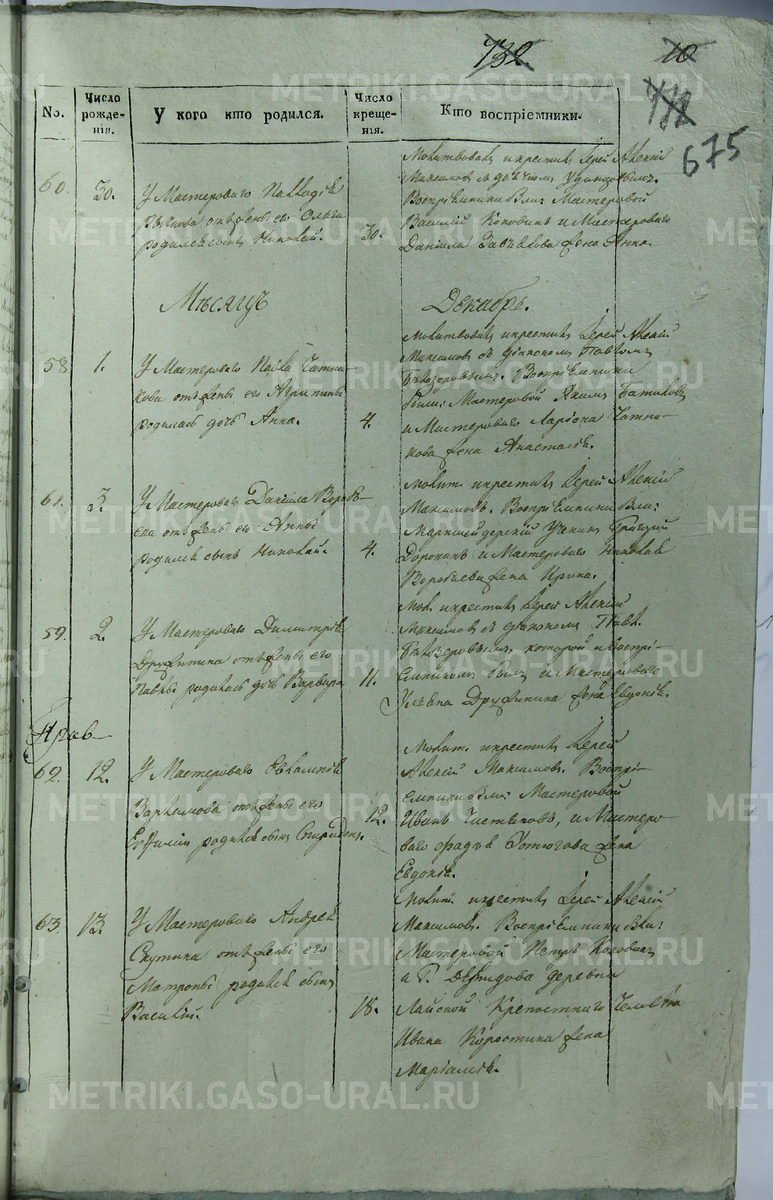 732
10
732
675
No.
Число рожде-нія.
У кого кто родился.
Число креще-нія.
Кто воспріемники.
60.
30.
У Мастероваго
отъ жены его Ольги
родился сынъ Николай.
30.
Молитвовалъ и крестилъ Іерей Алексій
Максимовъ съ дьячкомъ Удинцовымъ.
Воспріемники были: Мастеровой
Василій Коковинъ и Мастероваго
Даніила жена Анна.
Мѣсяцъ
Декабрь.
58.
1.
У Мастероваго Павла
отъ жены его Агрипины
родилась дочь Анна.
4.
Молитвовалъ и крестилъ Іерей Алексій
Максимовъ съ дьякономъ Павломъ
Воспріемники
были: Мастеровой Якимъ
и Мастероваго Ларіона
жена Анастасія.
61.
3.
У Мастероваго Даніила Воробь-
ева отъ жены его Анны
родился сынъ Николай.
4.
Молит. и крестилъ Іерей Алексій
Максимовъ. Воспріемники были:
Маркшейдерскій Ученикъ Григорій
Доронинъ и Мастероваго Николая
Воробьева жена Ирина.
59.
2.
У Мастероваго Димитрія
Дружинина отъ жены его
родилась дочь Варвара
11.
Мол. и крестилъ Іерей Алексій
Максимовъ съ дьякономъ Павл.
который и воспрі-
емникомъ былъ и Мастероваго
Дружинина жена Евдокія.
Прав
62.
12.
У Мастероваго Евлампія
Варламова отъ жены его
родился сынъ Спиридонъ.
12.
Молит. и крестилъ Іерей
Алексій Максимовъ. Воспрі-
емники были: Мастеровой
Иванъ и Мастеро-
ваго Фадѣя Утюгова жена
Евдокія.
63.
13.
У Мастероваго Андрея
Скутина отъ жены его
Матроны родился сынъ
Василій.
18.
Молит. и крестилъ Іерей Алексій
Максимовъ. Воспріемники были:
Мастеровой Петръ Коковинъ
и Г. Демидова деревни
Лайской Крепостнаго Человѣка
Ивана Коростина жена
Маріамія.
METRIKI.GASO-URAL.RU